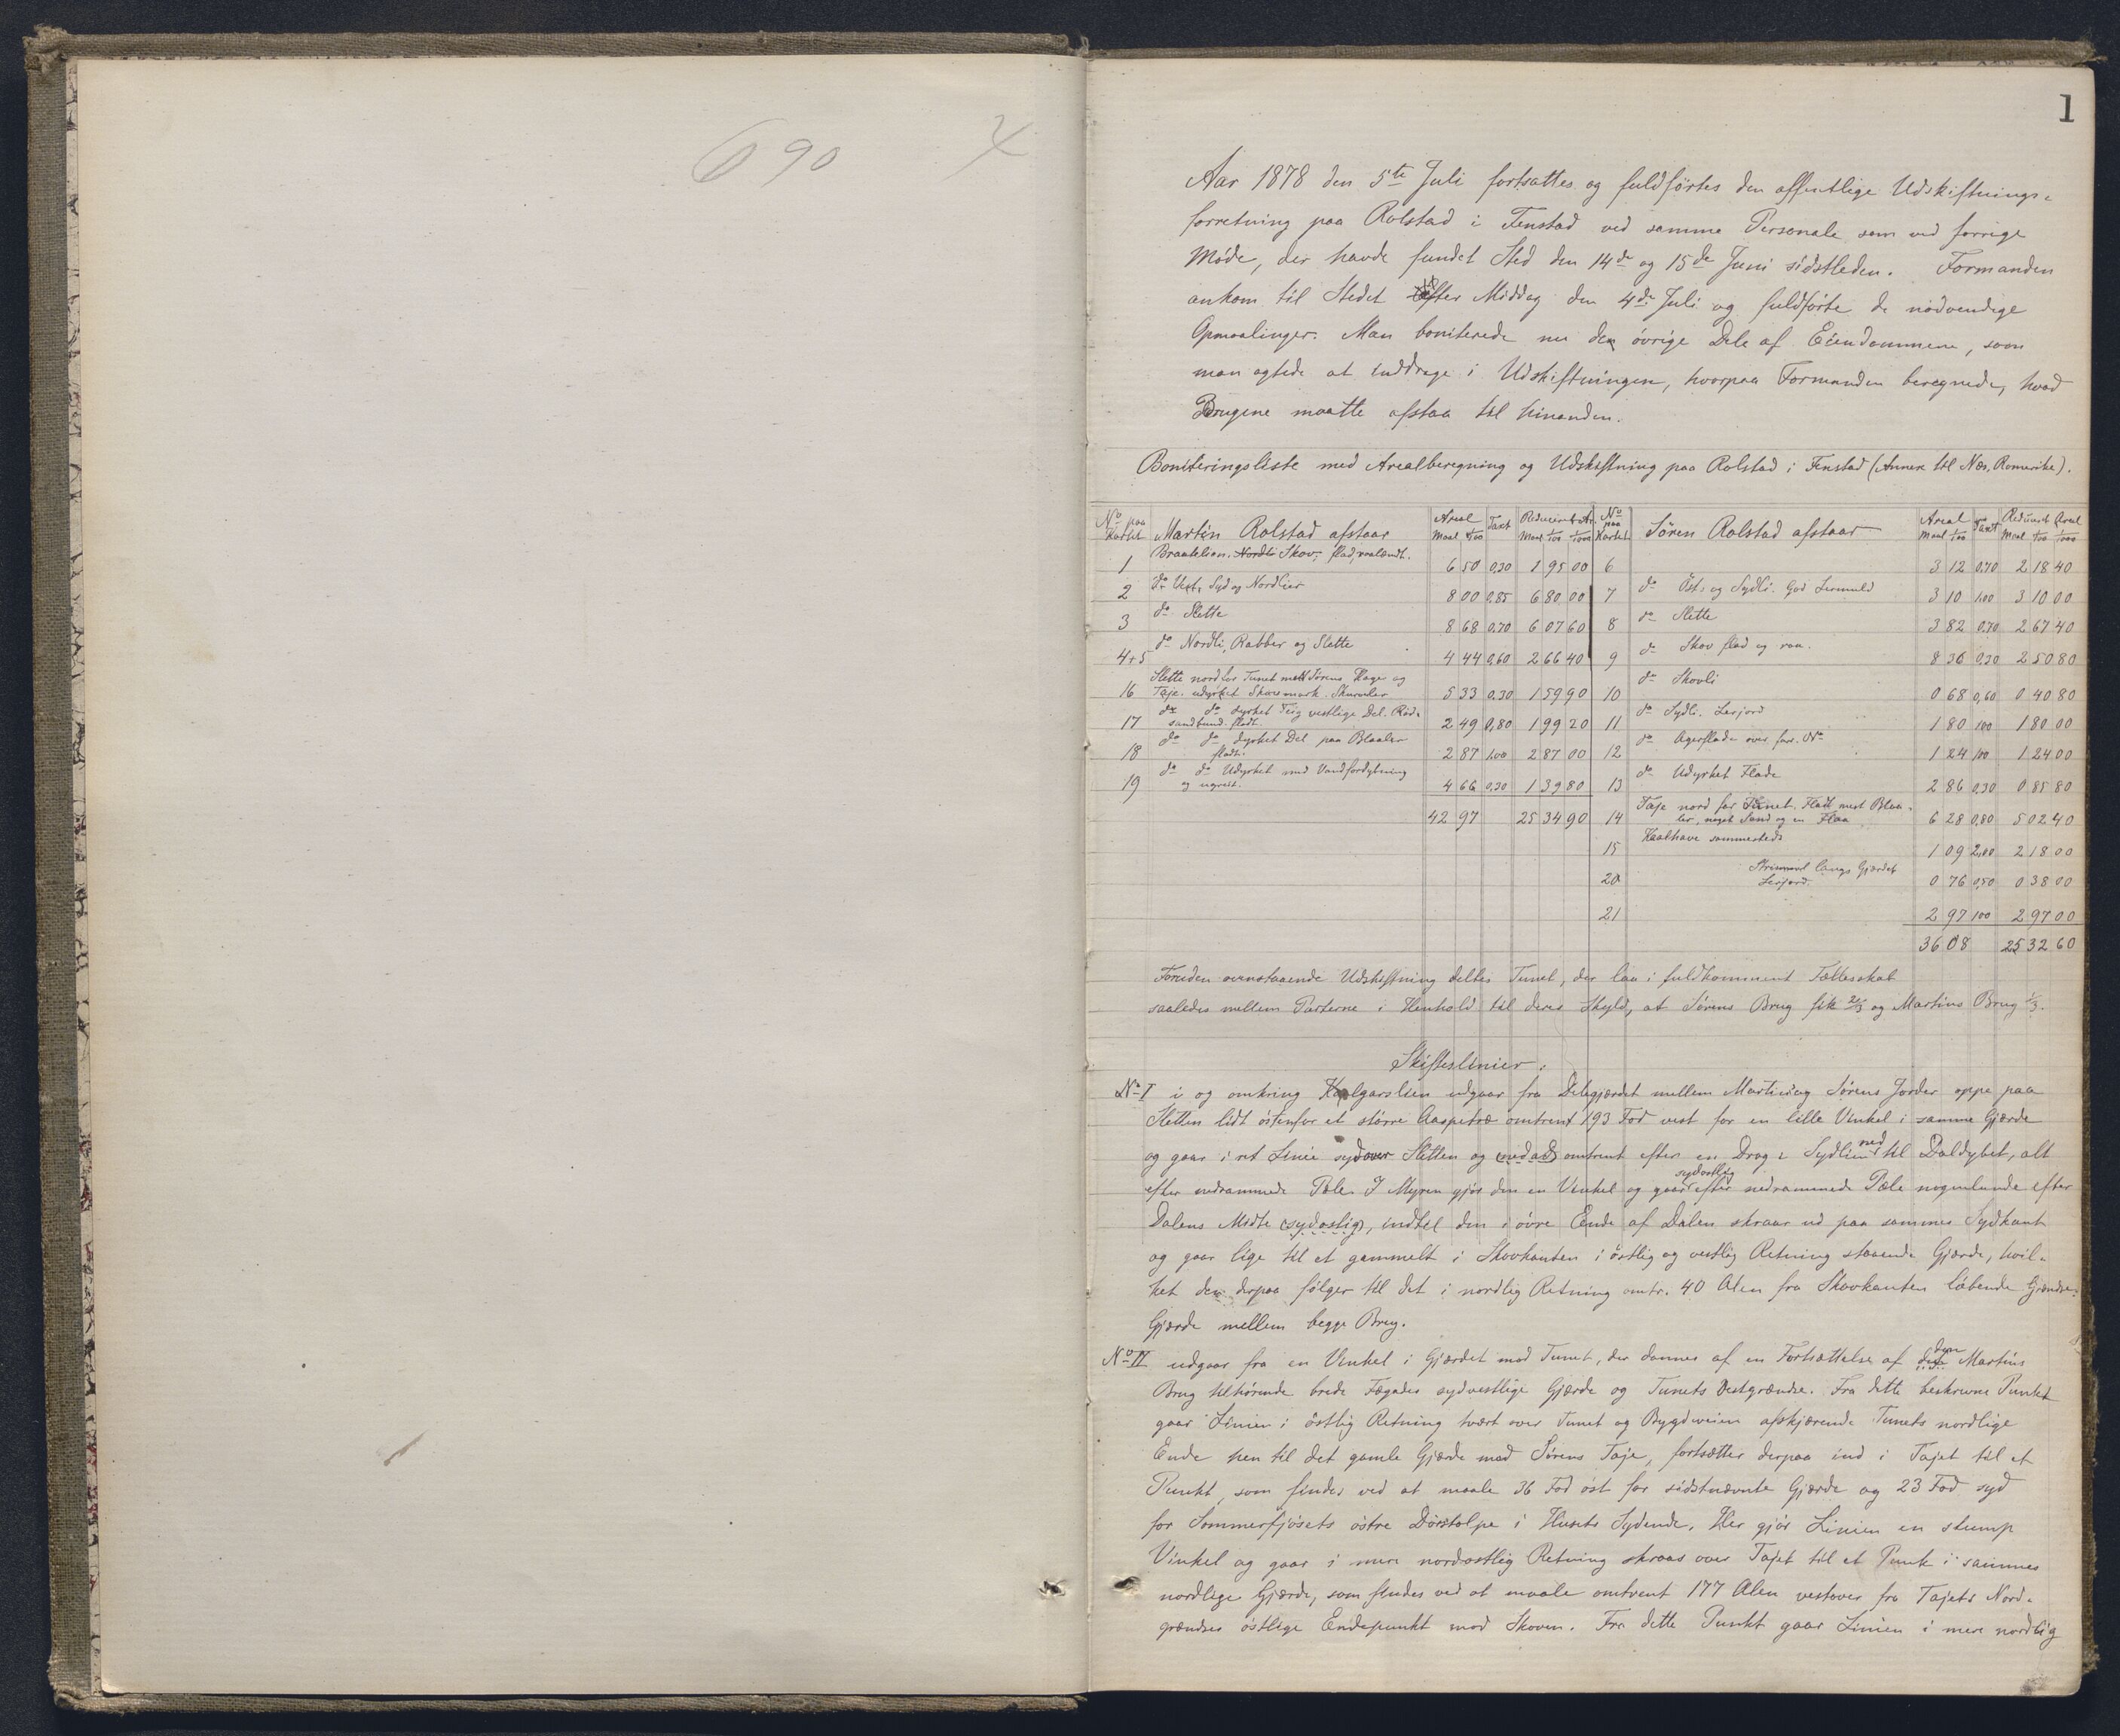 690 4
1
Aar 1878 den 5te Juli fortsattes og fuldførtes den offentlige Udskiftnings-
forretning paa Rolstad i Fenstad ved samme Personale som ved forrige
Møde, der havde fundet Sted den 14de og 15de Juni sidstleden. Formanden
ankom til Stedet Efter Middag den 4de Juli og fuldførte de nødvendige
Opmaalinger. Man boniterede nu den øvrige Dele af Eiendommene, som
man agtede at inddrage i Udskiftningen, hvorpaa Formanden beregnede, hvad
Brugene maatte afstaa til hinanden.
Boniteringsliste med Arealberegning og Udskiftning paa Rolstad i Fenstad (Annex til Næs, Romerike).
No paa Kartet | Martin Rolstad afstaar | Areal Maal 1/100 | Taxt | Reduceret Ar. Maal 1/100 1/1000 | No paa Kartet | Søren Rolstad afstaar | Areal Maal 1/100 | Taxt | Reduceret Areal Maal 1/100 1/1000
1 | Braatelien. Nordli Skov, flad, vaalændt. | 6 50 | 0,30 | 1 95 00 | 6 | | 3 12 | 0,70 | 2 18 40
2 | do Vest, Syd og Nordlier | 8 00 | 0,85 | 6 80 00 | 7 | do Øst- og Sydli. God Lermuld | 3 10 | 1,00 | 3 10 00
3 | do Slette | 8 68 | 0,70 | 6 07 60 | 8 | do Slette | 3 82 | 0,70 | 2 67 40
4+5 | do Nordli, Rabber og Slette | 4 44 | 0,60 | 2 66 40 | 9 | do Skov flad og raa. | 8 36 | 0,30 | 2 50 80
16 | Slette nordfor Tunet mell Sørens Hage og Taje. udyrket Skovsmark. | 5 33 | 0,30 | 1 59 90 | 10 | do Skovli | 0 68 | 0,60 | 0 40 80
17 | do do dyrket Teig vestlige Del. Rød- sandbund. fladt. | 2 49 | 0,80 | 1 99 20 | 11 | do Sydli. Lerjord | 1 80 | 1,00 | 1 80 00
18 | do do dyrket Del paa Blaaler fladt. | 2 87 | 1,00 | 2 87 00 | 12 | do Agerflade over forr. No | 1 24 | 1,00 | 1 24 00
19 | do do Udyrket med Vandfordybning og ugreit. | 4 66 | 0,30 | 1 39 80 | 13 | do Udyrket Flade | 2 86 | 0,30 | 0 85 80
42 97 | 25 34 90 | 14 | Taje nord for Tunet. Fladt mest Blaa- ler, noget Sand og en Flaa | 6 28 | 0,80 | 5 02 40
15 | Kaalhave sammesteds | 1 09 | 2,00 | 2 18 00
20 | langs Gjærdet Lerjord. | 0 76 | 0,50 | 0 38 00
21 | | 2 97 | 1,00 | 2 97 00
36 08 | 25 32 60
Foruden ovenstaaende Udskiftning deltes Tunet, der laa i fuldkomment Fællesskab
saaledes mellem Parterne i Henhold til deres Skyld, at Sørens Brug fik 2/3 og Martins Brug 1/3.
Skifteslinier.
No I i og omkring Kolgarslien udgaar fra Delegjærdet mellem Martins og Sørens Jorder oppe paa
Sletten lidt østenfor et større Aaspetræ omtrent 193 Fod vest for en lille Vinkel i samme Gjærde
og gaar i ret Linie sydover Sletten og (nedad) omtrent efter en Drog i Sydlien ned til Daldybet, alt
efter nedrammede Pæle. I Myren gjør den en Vinkel og gaar sydostlig efter nedrammede Pæle nogenlunde efter
Dalens Midte (sydostlig), indtil den i øvre Ende af Dalen skraar ud paa sammes Sydkant
og gaar lige til et gammelt i Skovkanten i østlig og vestlig Retning staaende Gjærde, hvil-
ket den derpaa følger til det i nordlig Retning omtr. 40 Alen fra Skovkanten løbende Grændse-
Gjærde mellem begge Brug.
No II udgaar fra en Vinkel i Gjærdet mod Tunet, der dannes af en Fortsættelse af den Martins
Brug tilhørende brede Fægades sydvestlige Gjærde og Tunets Vestgrændse. Fra dette beskrevne Punkt
gaar Linien i østlig Retning tvært over Tunet og Bygdeveien afskjærende Tunets nordlige
Ende hen til det gamle Gjærde mod Sørens Taje, fortsætter derpaa ind i Tajet til et
Punkt, som findes ved at maale 36 Fod øst for sidstnævnte Gjærde og 23 Fod syd
for Sommerfjøsets østre Dørstolpe i Husets Sydende. Her gjør Linien en stump
Vinkel og gaar i mere nordostlig Retning skraas over Tajet til et Punk i sammes
nordlige Gjærde, som findes ved at maale omtrent 177 Alen vestover fra Tajets Nord-
grændses østlige Endepunkt mod Skoven. Fra dette Punkt gaar Linien i mere nordlig